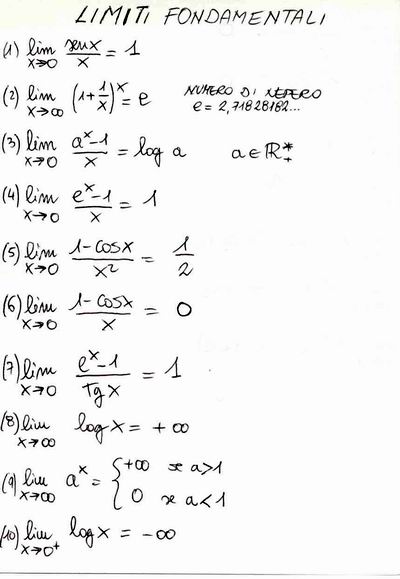 LIMITI FONDAMENTALI
(1) lim x→0 senx/x = 1
(2) lim x→∞ (1+1/x)^x = e NUMERO DI NEPERO
e = 2,71828182...
(3) lim x→0 a^x-1/x = log a a∈ℝ*₊
(4) lim x→0 e^x-1/x = 1
(5) lim x→0 1-cosx/x² = 1/2
(6) lim x→0 1-cosx/x = 0
(7) lim x→0 e^x-1/Tgx = 1
(8) lim x→∞ logx = +∞
(9) lim x→∞ a^x = { +∞ se a>1
0 se a<1
(10) lim x→0⁺ logx = -∞